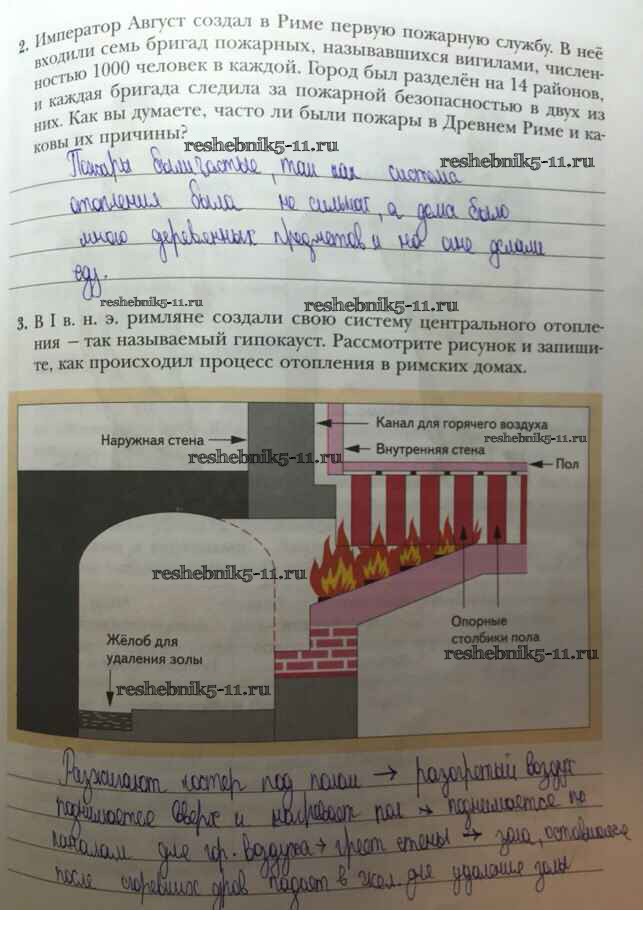 2. Император Август создал в Риме первую пожарную службу. В неё
входили семь бригад пожарных, называвшихся вигилами, числен-
ностью 1000 человек в каждой. Город был разделён на 14 районов,
и каждая бригада следила за пожарной безопасностью в двух из
них. Как вы думаете, часто ли были пожары в Древнем Риме и ка-
ковы их причины?
reshebnik5-11.ru
reshebnik5-11.ru
Пожары были частые, так как система
отопления была не сильной, а дома было
много деревянных предметов и на огне делали
еду.
reshebnik5-11.ru
reshebnik5-11.ru
3. В I в. н. э. римляне создали свою систему центрального отопле-
ния – так называемый гипокауст. Рассмотрите рисунок и запиши-
те, как происходил процесс отопления в римских домах.
Наружная стена
Канал для горячего воздуха
Внутренняя стена
reshebnik5-11.ru
reshebnik5-11.ru
Пол
reshebnik5-11.ru
Опорные
столбики пола
Жёлоб для
удаления золы
reshebnik5-11.ru
reshebnik5-11.ru
Разжигают костер под полом → разогретый воздух
поднимается вверх и нагревает пол → поднимается по
каналам для гор. воздуха → греет стены → зола, оставшаяся
после сгоревших дров падает в жел. для удаления золы